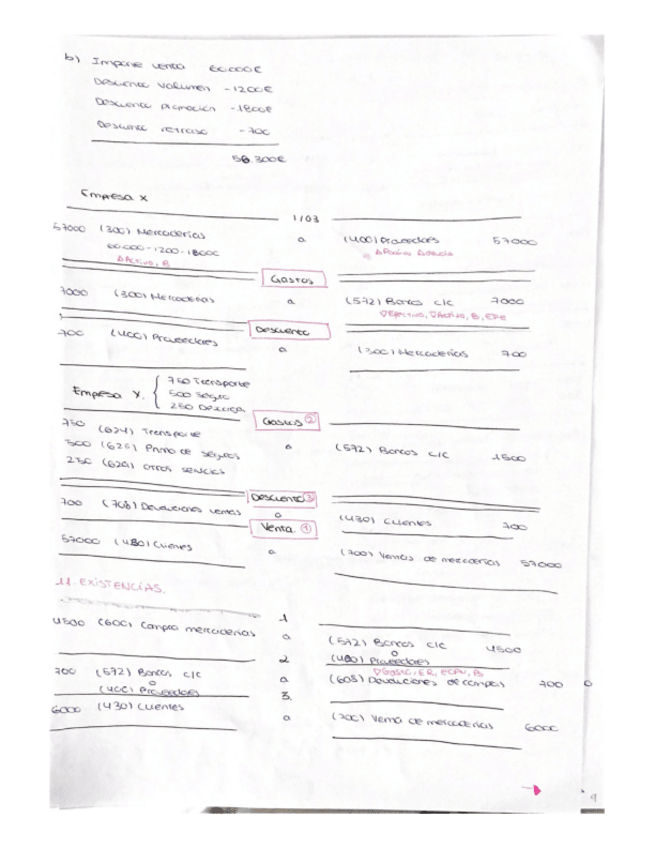 b) Importe venta 60.000€
Descuento volumen -1200€
Descuento promoción -1800€
Descuento retraso -700
56.300€
Empresa X
1/03
57000 (300) Mercaderías a (400) Proveedores 57000
60.000-1200-1800€
Δ Activo, B
Δ Pasivo Δ deuda
Gastos
7000 (300) Mercaderías a (572) Bancos c/c 7000
∇ Efectivo, ∇ Activo, B, EFE
Descuento
700 (400) Proveedores a (300) Mercaderías 700
Empresa Y. { 750 Transporte
500 Seguro
250 Descarga
Gastos ②
750 (624) Transporte
500 (625) Prima de seguros a (572) Bancos c/c 1500
250 (629) Otros servicios
Descuento ③
700 (708) Devoluciones ventas a (430) Clientes 700
Venta ①
57000 (430) Clientes a (700) Ventas de mercaderías 57000
11. EXISTENCIAS.
1
4500 (600) Compra mercaderías a (572) Bancos c/c 4500
o
(400) Proveedores
2
∇ Gasto, ER, ECPN, B
700 (572) Bancos c/c a (608) Devoluciones de compras 700
o
(400) Proveedores
3.
6000 (430) Clientes a (700) Venta de mercaderías 6000
9